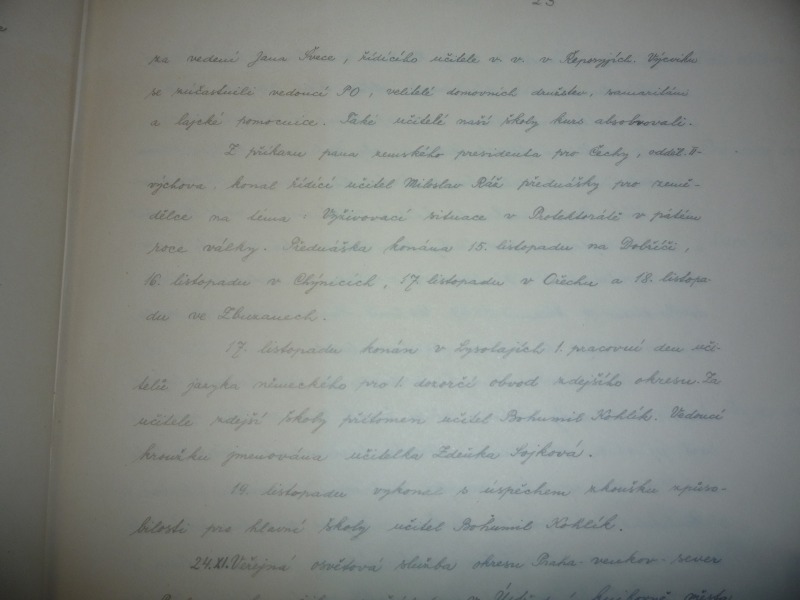 23
za vedení Jana Švece, řídícího učitele v. v. v Řeporyjích. Výcviku
se zúčastnili vedoucí PO, velitelé domovních družstev, samaritáni
a lajcké pomocnice. Také učitelé naší školy kurs absolvovali.
Z příkazu pana zemského presidenta pro Čechy, odděl. II-
výchova, konal řídící učitel Miloslav Ráž přednášky pro země-
dělce na téma: Vyživovací situace v Protektorátě v pátém
roce války. Přednáška konána 15. listopadu na Dobříči,
16. listopadu v Chýnicích, 17. listopadu v Ořechu a 18. listopa-
du ve Zbuzanech.
17. listopadu konán v Lysolajích 1. pracovní den uči-
telů jazyka německého pro 1. dozorčí obvod zdejšího okresu. Za
učitele zdejší školy přítomen učitel Bohumil Kohlík. Vedoucí
kroužku jmenována učitelka Zdeňka Sojková.
19. listopadu vykonal s úspěchem zkoušku způso-
bilosti pro hlavní školy učitel Bohumil Kohlík.
24.XI. Veřejná osvětová služba okresu Praha-venkov-sever